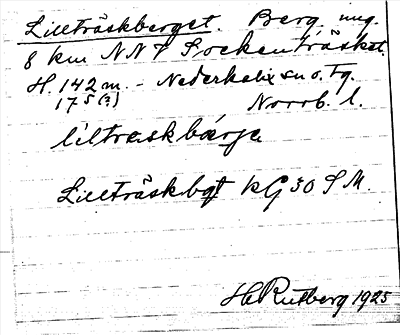 Lillträskberget. Berg ung.
8 km NNV Sockenträsket.
H. 142 m. - Nederkalix sn o. tg.
175 (?) Norrb. l.
liltraskbärje
Lillträskbgt KG 30 S M.
H Rutberg 1925